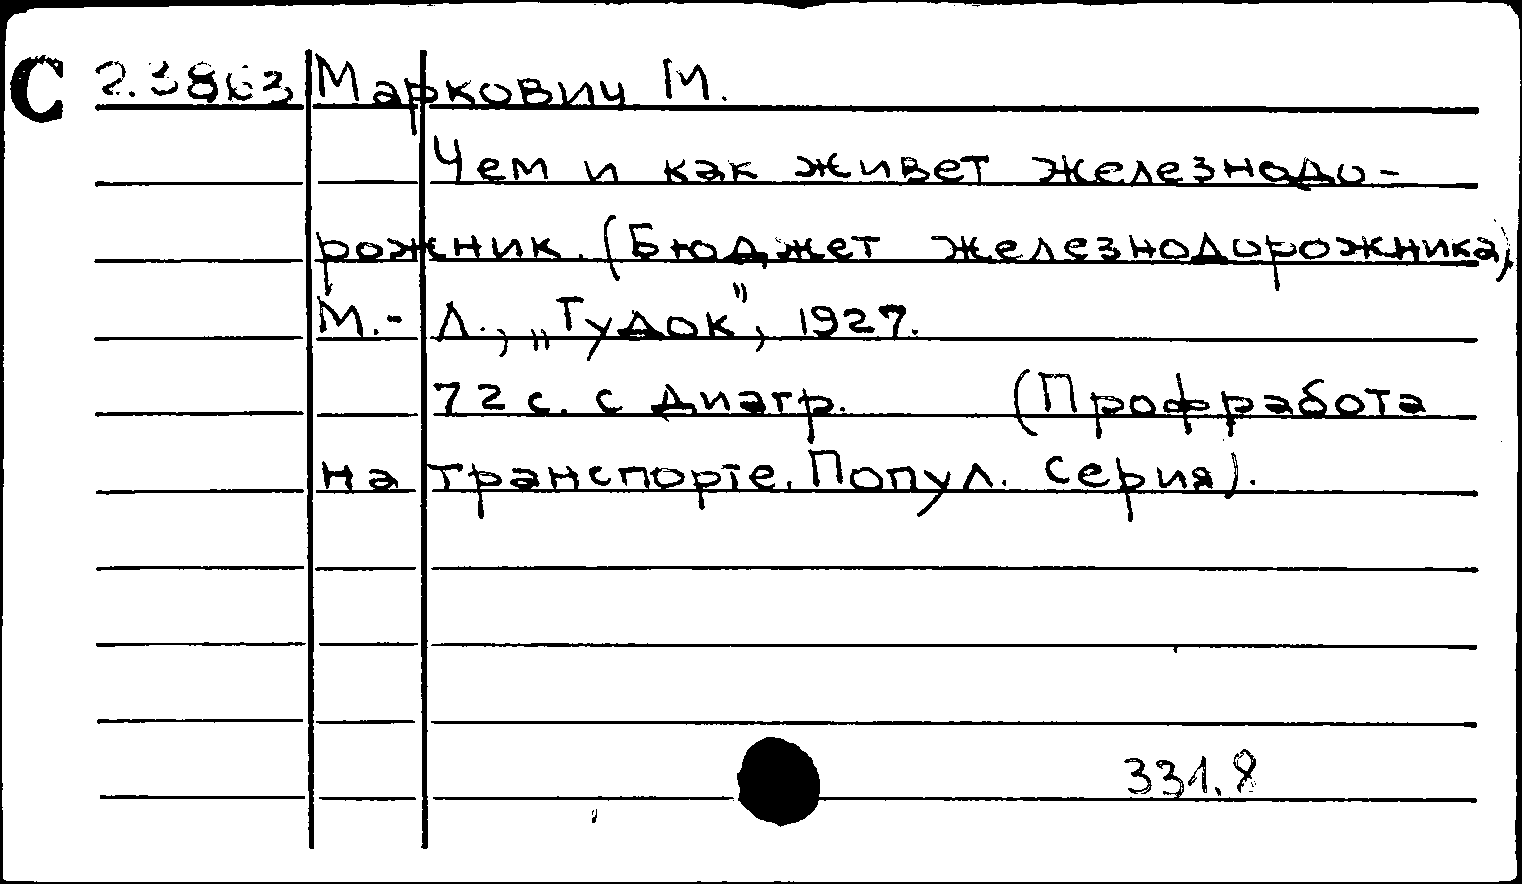 С 2.3863 Маркович М.
Чем и как живет железнодо-
рожник. (Бюджет железнодорожника).
М.- Л., „Гудок", 1927.
72 с. с диагр. (Профработа
на транспорте. Попул. серия).
331.8